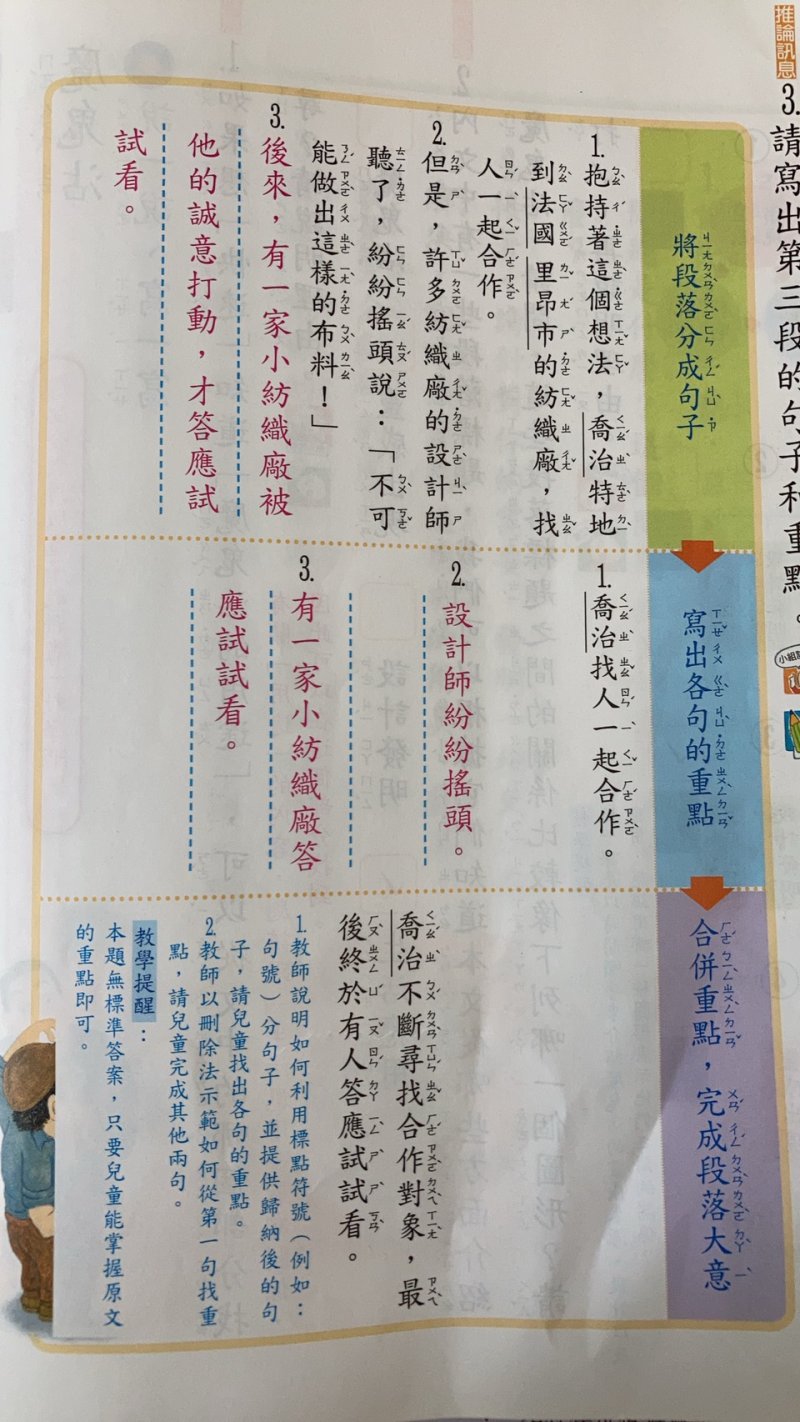 推論訊息
3.請寫出第三段的句子和重點。
將段落分成句子
1.抱持著這個想法，喬治特地
到法國里昂市的紡織廠，找
人一起合作。
2.但是，許多紡織廠的設計師
聽了，紛紛搖頭說：「不可
能做出這樣的布料！」
3.後來，有一家小紡織廠被
他的誠意打動，才答應試
試看。
寫出各句的重點
1.喬治找人一起合作。
2.設計師紛紛搖頭。
3.有一家小紡織廠答
應試試看。
合併重點，完成段落大意
喬治不斷尋找合作對象，最
後終於有人答應試試看。
1.教師說明如何利用標點符號（例如：
句號）分句子，並提供歸納後的句
子，請兒童找出各句的重點。
2.教師以刪除法示範如何從第一句找重
點，請兒童完成其他兩句。
教學提醒：
本題無標準答案，只要兒童能掌握原文
的重點即可。